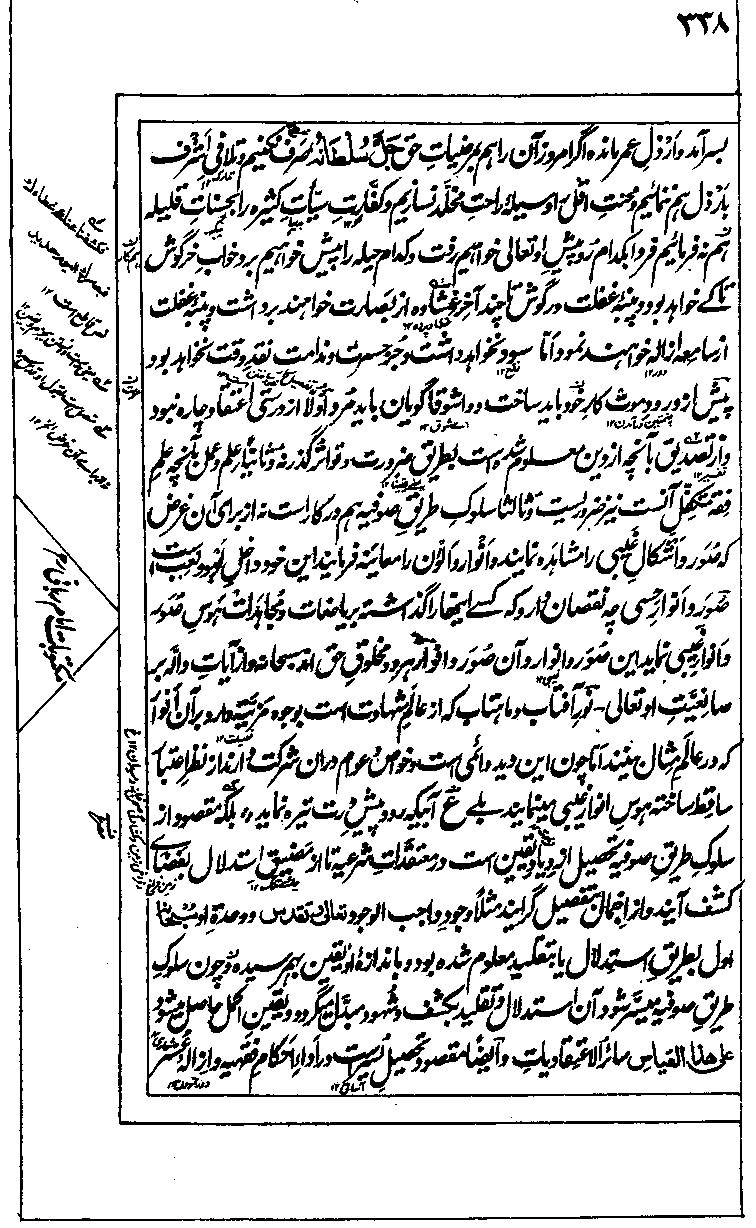 ۳۳۸
بسر آمد و ارذل عمر مانده اگر امروز آن را هم بمرضیات حق جل سلطانه صرف نکنیم و تلافی اشرف
بارذل هم ننمائیم و محنت اقل را وسیلهٔ راحت مخلد نسازیم و کفارت سیئات کثیره را بحسنات قلیله
هم نه فرمائیم فردا بکدام رو پیش او تعالی خواهیم رفت و کدام حیله را پیش خواهیم برد خواب خرگوش
تا کے خواهد بود و پنبهٔ غفلت در گوش تا چند آخر غشاوه از بصارت خواهند برداشت و پنبهٔ غفلت
از سامعه ازاله خواهند نمود اما سود نخواهد داشت و جز حسرت و ندامت نقد وقت نخواهد بود
پیش از ورود موت کار خود باید ساخت و واشوقا گویان باید مرد اولا از درستی اعتقاد چاره نبود
و از تصدیق بآنچه از دین معلوم شده است بطریق ضرورت و تواتر گذر نه و ثانیا از علم و عمل بآنچه علم
فقه متکفل آنست نیز ضروریست و ثالثا سلوک طریق صوفیه هم در کار است نه از برای آن غرض
که صور و اشکال غیبی را مشاهده نمایند و انوار و الوان را معاینه فرمایند این خود داخل لهو و لعب است
صور و انوار حسی چه نقصان دارد که کسے اینها را گذاشته بریاضات و مجاهدات هوس صور
و انوار غیبی نماید این صور و انوار و آن صور و انوار هر دو مخلوق حق اند سبحانه و از آیات داله بر
صانعیت او تعالی نور آفتاب و ماهتاب که از عالم شهادت است بوجوه مزیت دارد بر آن انوار
که در عالم مثال بینند اما چون این دید دائمی است و خواص و عوام در آن شرکت دارند از نظر اعتبار
ساقط ساخته هوس انوار غیبی مینمایند بلے ع آبیکه رود پیش درت تیره نماید بلکه مقصود از
سلوک طریق صوفیه تحصیل ازدیاد یقین است در معتقدات شرعیه تا از مضیق استدلال بفضای
کشف آیند و از اجمال بتفصیل گرایند مثلا وجود واجب الوجود تعالی و تقدس و وحدة او سبحانه
اول بطریق استدلال یا بتقلید معلوم شده بود و باندازهٔ او یقین بهم رسیده و چون سلوک
طریق صوفیه میسر شود آن استدلال و تقلید بکشف و شهود مبدل میگردد و یقین اکمل حاصل میشود
علی هذا القیاس سائر الاعتقادیات و ایضا مقصود تحصیل یسر است در اداء احکام فقهیه و ازالهٔ عسر
مکتوبات امام ربانی رح